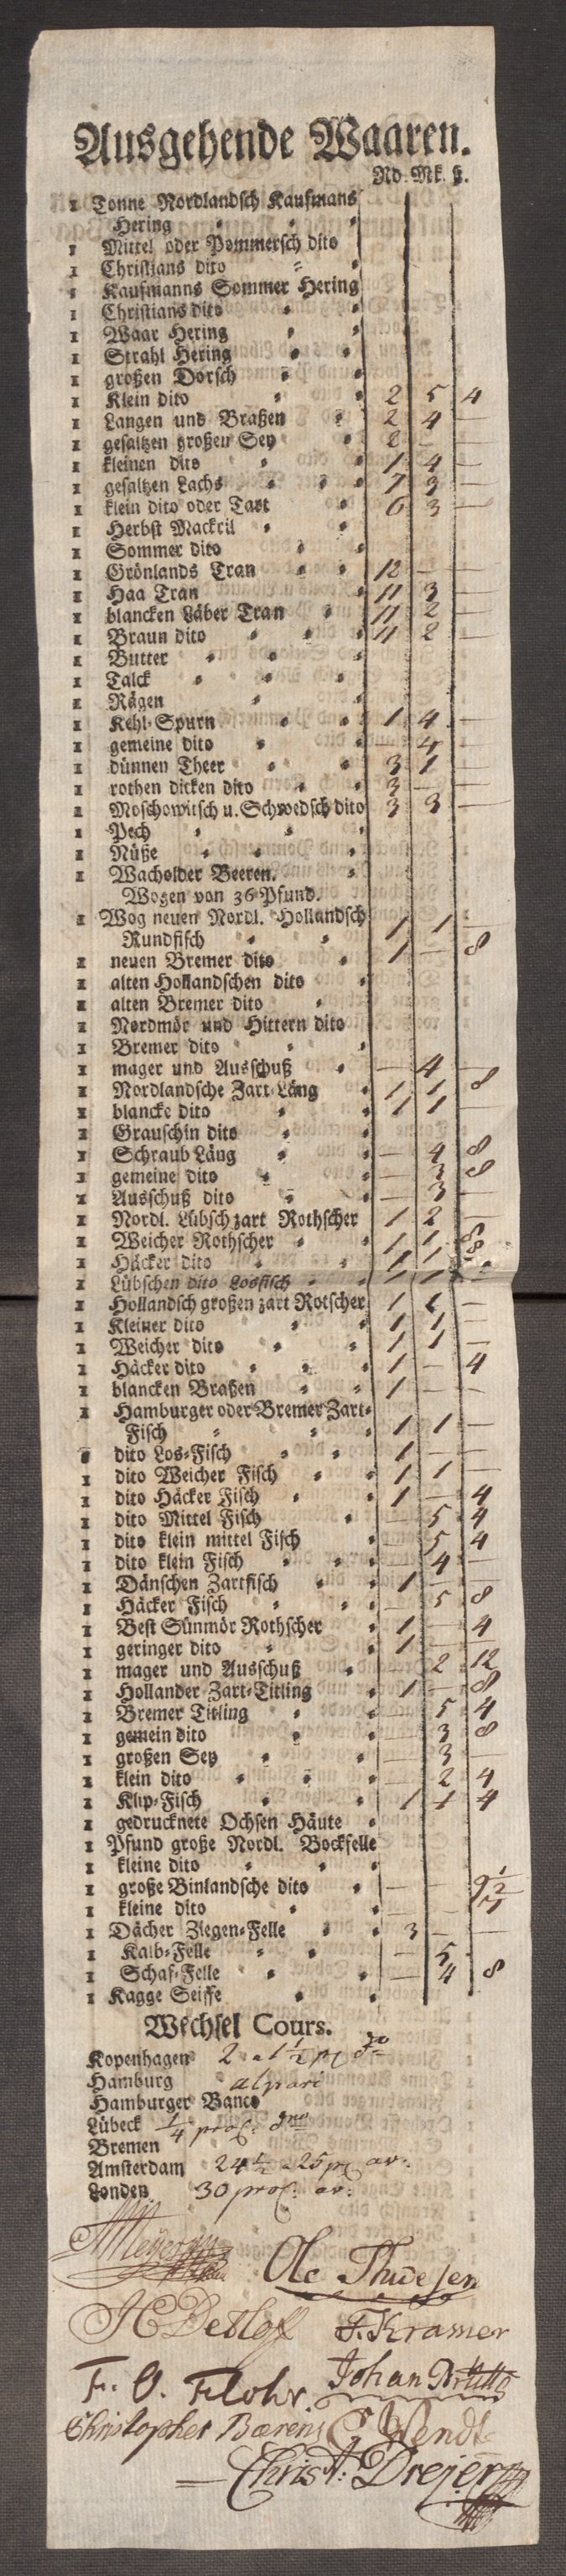 Ausgehende Waaren.
Rd. Mk. ß.
1 Tonne Nordlandsch Kaufmans
Hering
1 Mittel oder Pommersch dito
1 Christians dito
1 Kaufmanns Sommer Hering
1 Christians dito
1 Waar Hering
1 Strahl Hering
1 großen Dorsch
1 Klein dito 2 5 4
1 Langen und Braßen 2 4 —
1 gesaltzen großen Sey 2 — —
1 kleinen dito 1 4 —
1 gesaltzen Lachs 7 3 —
1 klein dito oder Tart 6 3 —
1 Herbst Mackril
1 Sommer dito
1 Grönlands Tran 12 — —
1 Haa Tran 11 3 —
1 blancken Läber Tran 11 2 —
1 Braun dito 11 2 —
1 Butter
1 Talck
1 Rägen
1 Kehl-Spurn 1 4 —
1 gemeine dito 4 —
1 dünnen Theer 3 1 —
1 rothen dicken dito 3 — —
1 Moschowitsch u. Schwedsch dito 3 3 —
1 Pech
1 Nüße
1 Wacholder Beeren.
Wogen von 36 Pfund.
1 Wog neuen Nordl. Hollandsch
Rundfisch 1 1 —
1 neuen Bremer dito 1 — 8
1 alten Hollandschen dito
1 alten Bremer dito
1 Nordmör und Hittern dito
1 Bremer dito
1 mager und Ausschuß — 4 —
1 Nordlandsche Zart-Läng 1 1 8
1 blancke dito 1 1 —
1 Grauschin dito
1 Schraub Läng — 4 8
1 gemeine dito — 3 8
1 Ausschuß dito — 3 —
1 Nordl. Lübsch zart Rothscher 1 2 —
1 Weicher Rothscher 1 1 8
1 Häcker dito 1 1
1 Lübschen dito Losfisch 1 1
1 Hollandsch großen zart Rotscher 1 —
1 Kleiner dito 1 1 —
1 Weicher dito 1 1 —
1 Häcker dito 1 — 4
1 blancken Braßen 1 — —
1 Hamburger oder Bremer Zart-
Fisch 1 1 —
1 dito Los-Fisch 1 — —
1 dito Weicher Fisch 1 1 —
1 dito Häcker Fisch 1 — 4
1 dito Mittel Fisch — 5 4
1 dito klein mittel Fisch — 5 4
1 dito klein Fisch — 4 —
1 Dänschen Zartfisch 1 — —
1 Häcker Fisch — 5 8
1 Best Sünmör Rothscher 1 — 4
1 geringer dito 1 — —
1 mager und Ausschuß 2 12
1 Hollander Zart-Titling 1 — 8
1 Bremer Titling — 5 4
1 gemein dito — 3 8
1 großen Sey — 3 —
1 klein dito — 2 4
1 Klip-Fisch 1 1 4
1 gedrucknete Ochsen Häute
1 Pfund große Nordl. Bockfelle
1 kleine dito
1 große Binlandsche dito — — 9½
1 kleine dito — — 7
1 Dächer Ziegen-Felle 3 — —
1 Kalb-Felle — 5
1 Schaf-Felle — 4 8
1 Kagge Seiffe
Wechsel Cours.
Kopenhagen 2 a 1½
Hamburg al pari
Hamburger Banco
Lübeck ¼
Bremen
Amsterdam 24½ a 25
London 30
Ole Thuesen
HC Detlof
F. Kramer
F. O. Flohr
Johan
Christopher Bærens
C Wendt
Christ: Drejer